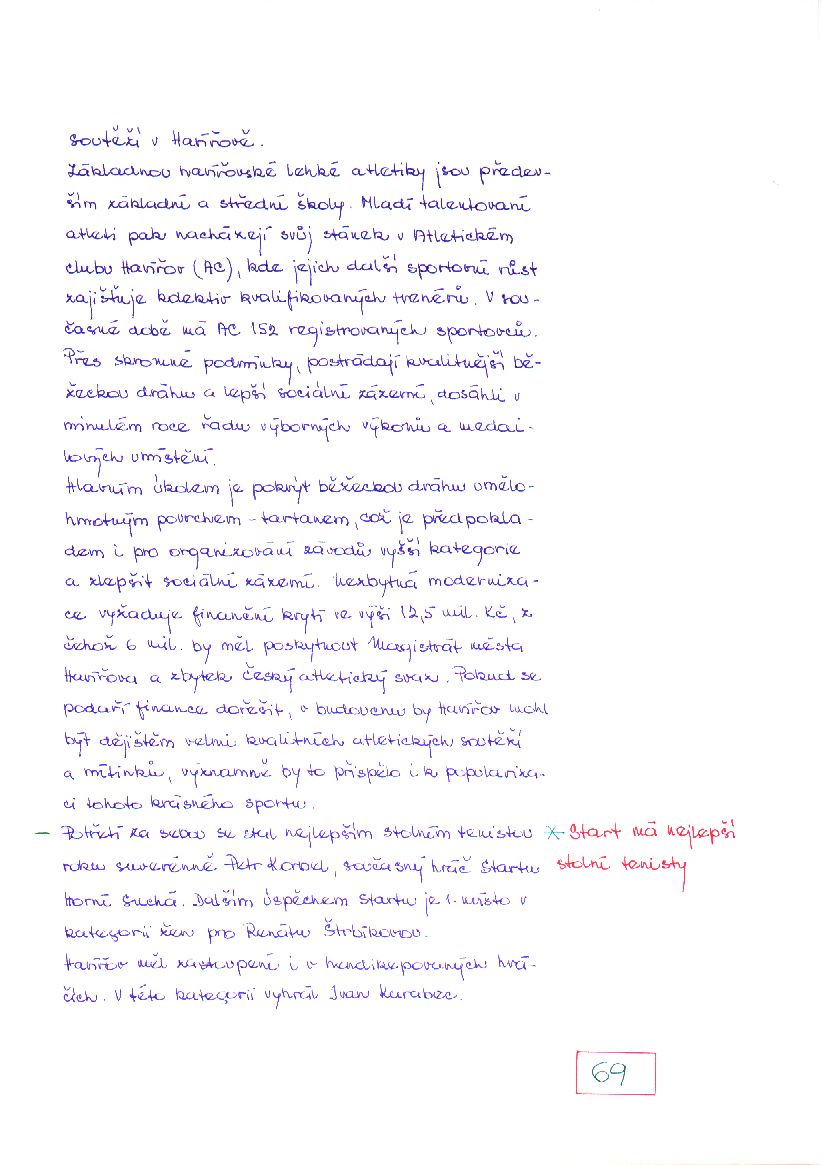 soutěží v Havířově.
Základnou havířovské lehké atletiky jsou předev-
ším základní a střední školy. Mladí talentovaní
atleti pak nacházejí svůj stánek v Atletickém
clubu Havířov (AC), kde jejich další sportovní růst
zajišťuje kolektiv kvalifikovaných trenérů. V sou-
časné době má AC 152 registrovaných sportovců.
Přes skromné podmínky, postrádají kvalitnější bě-
žeckou dráhu a lepší sociální zázemí, dosáhli v
minulém roce řadu výborných výkonů a medai-
lových umístění.
Hlavním úkolem je pokrýt běžeckou dráhu umělo-
hmotným povrchem - tartanem, což je předpokla-
dem i pro organizování závodů vyšší kategorie
a zlepšit sociální zázemí. Nezbytná moderniza-
ce vyžaduje finanční krytí ve výši 12,5 mil. Kč, z
čehož 6 mil. by měl poskytnout Magistrát města
Havířova a zbytek Český atletický svaz. Pokud se
podaří finance dořešit, v budoucnu by Havířov mohl
být dějištěm velmi kvalitních atletických soutěží
a mítinků, významně by to přispělo i k populariza-
ci tohoto krásného sportu.
– Potřetí za sebou se stal nejlepším stolním tenistou * Start má nejlepší
roku suverénně Petr Korbel, současný hráč Startu stolní tenisty
Horní Suchá. Dalším úspěchem Startu je 1. místo v
kategorii žen pro Renátu Štrbíkovou.
Havířov měl zastoupení i v hendikepovaných hrá-
čích. V této kategorii vyhrál Ivan Karabec.
69